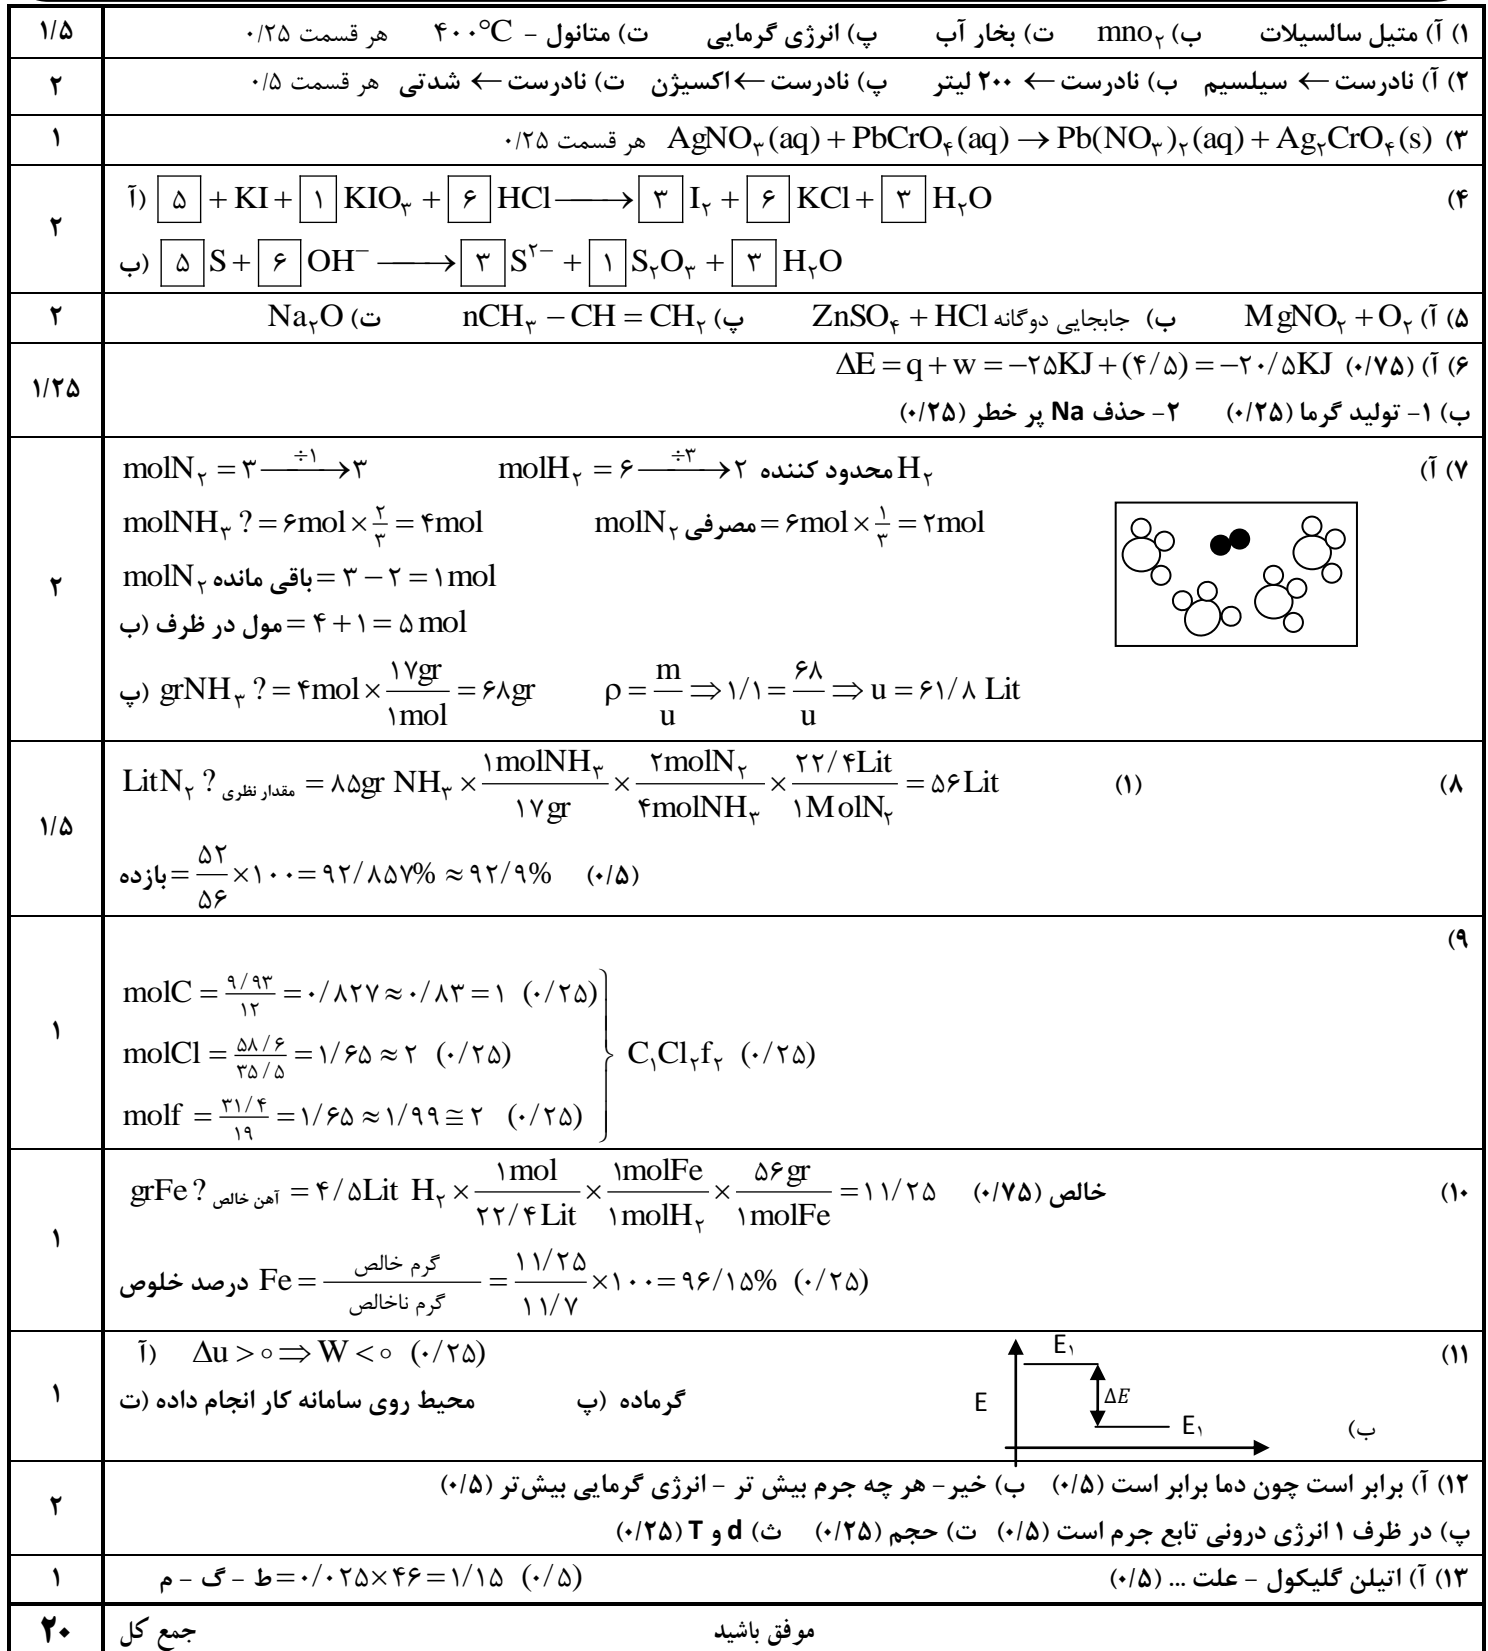 ۱) آ) متیل سالسیلات ب) mno۲ ت) بخار آب پ) انرژی گرمایی ت) متانول - ۴۰۰°C هر قسمت ۰/۲۵
۱/۵
۲) آ) نادرست ← سیلسیم ب) نادرست ← ۲۰۰ لیتر پ) نادرست ← اکسیژن ت) نادرست ← شدتی هر قسمت ۰/۵
۲
۳) AgNO۳(aq) + PbCrO۴(aq) → Pb(NO۳)۲(aq) + Ag۲CrO۴(s) هر قسمت ۰/۲۵
۱
۴) آ) ۵ + KI + ۱ KIO۳ + ۶ HCl → ۳ I۲ + ۶ KCl + ۳ H۲O
ب) ۵ S + ۶ OH⁻ → ۳ S۲− + ۱ S۲O۳ + ۳ H۲O
۲
۵) آ) MgNO۲ + O۲ ب) جابجایی دوگانه ZnSO۴ + HCl پ) nCH۳ − CH = CH۲ ت) Na۲O
۲
۶) آ) ΔE = q + w = −۲۵KJ + (۴/۵) = −۲۰/۵KJ (۰/۷۵)
ب) ۱- تولید گرما (۰/۲۵) ۲- حذف Na پر خطر (۰/۲۵)
۱/۲۵
۷) آ) molN۲ = ۳ —÷۱→ ۳ molH۲ = ۶ —÷۳→ ۲ محدود کننده H۲
molNH۳ ? = ۶mol × ۲/۳ = ۴mol molN۲ مصرفی = ۶mol × ۱/۳ = ۲mol
molN۲ باقی مانده = ۳ − ۲ = ۱mol
ب) مول در ظرف = ۴ + ۱ = ۵ mol
پ) grNH۳ ? = ۴mol × ۱۷gr/۱mol = ۶۸gr ρ = m/u ⇒ ۱/۱ = ۶۸/u ⇒ u = ۶۱/۸ Lit
۲
۸) LitN۲ ? مقدار نظری = ۸۵gr NH۳ × ۱molNH۳/۱۷gr × ۲molN۲/۴molNH۳ × ۲۲/۴Lit/۱MolN۲ = ۵۶Lit (۱)
بازده = ۵۲/۵۶ × ۱۰۰ = ۹۲/۸۵۷% ≈ ۹۲/۹% (۰/۵)
۱/۵
۹)
molC = ۹/۹۳/۱۲ = ۰/۸۲۷ ≈ ۰/۸۳ = ۱ (۰/۲۵)
molCl = ۵۸/۶/۳۵/۵ = ۱/۶۵ ≈ ۲ (۰/۲۵) } C۱Cl۲f۲ (۰/۲۵)
molf = ۳۱/۴/۱۹ = ۱/۶۵ ≈ ۱/۹۹ ≅ ۲ (۰/۲۵)
۱
۱۰) grFe ? آهن خالص = ۴/۵Lit H۲ × ۱mol/۲۲/۴Lit × ۱molFe/۱molH۲ × ۵۶gr/۱molFe = ۱۱/۲۵ خالص (۰/۷۵)
درصد خلوص Fe = گرم خالص/گرم ناخالص = ۱۱/۲۵/۱۱/۷ × ۱۰۰ = ۹۶/۱۵% (۰/۲۵)
۱
۱۱) آ) Δu > ۰ ⇒ W < ۰ (۰/۲۵)
ب) E E۱ ΔE E۱
پ) گرماده ت) محیط روی سامانه کار انجام داده
۱
۱۲) آ) برابر است چون دما برابر است (۰/۵) ب) خیر- هر چه جرم بیش تر - انرژی گرمایی بیش‌تر (۰/۵)
پ) در ظرف ۱ انرژی درونی تابع جرم است (۰/۵) ت) حجم (۰/۲۵) ث) d و T (۰/۲۵)
۲
۱۳) آ) اتیلن گلیکول - علت ... (۰/۵) ط - گ - م = ۰/۰۲۵×۴۶ = ۱/۱۵ (۰/۵)
۱
موفق باشید جمع کل ۲۰